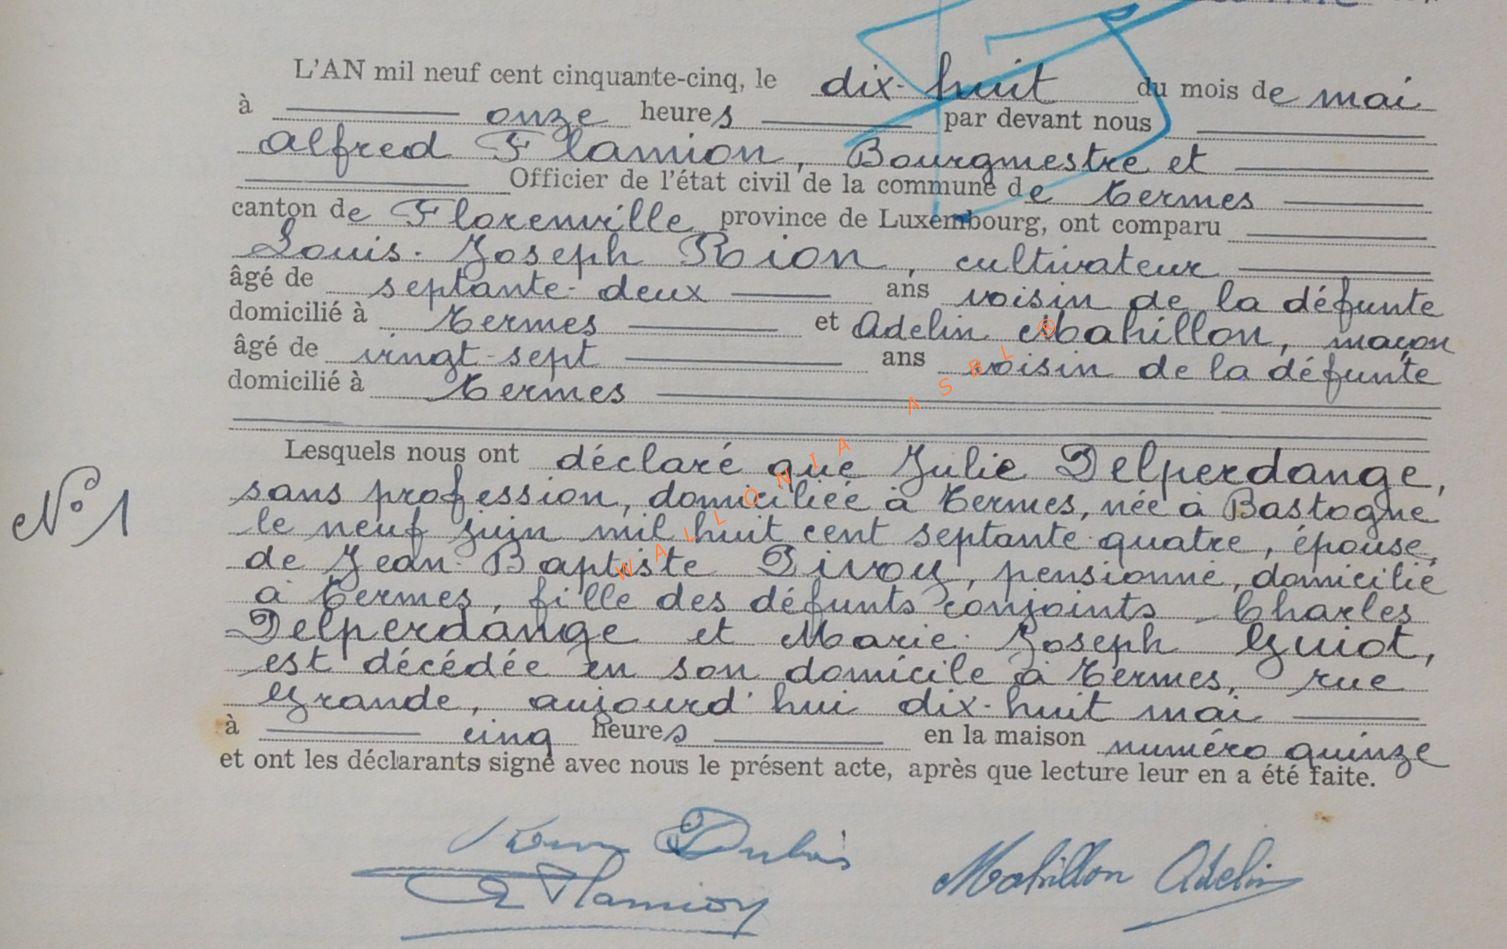 L'AN mil neuf cent cinquante-cinq, le dix-huit du mois de mai
à onze heures par devant nous
Alfred Flamion, Bourgmestre et
Officier de l'état civil de la commune de Termes
canton de Florenville province de Luxembourg, ont comparu
Louis-Joseph Rion, cultivateur
âgé de septante-deux ans voisin de la défunte
domicilié à Termes et Adelin Mahillon, maçon
âgé de vingt-sept ans voisin de la défunte
domicilié à Termes
Lesquels nous ont déclaré que Julie Delperdange,
sans profession, domiciliée à Termes, née à Bastogne
N° 1
le neuf juin mil huit cent septante-quatre, épouse
de Jean-Baptiste Pivoy, pensionné, domicilié
à Termes, fille des défunts conjoints Charles
Delperdange et Marie-Joseph Guiot,
est décédée en son domicile à Termes, rue
Grande, aujourd'hui dix-huit mai
à cinq heures en la maison numéro quinze
et ont les déclarants signé avec nous le présent acte, après que lecture leur en a été faite.
Mahillon Adelin
Flamion
WALLONIA ASBL ®